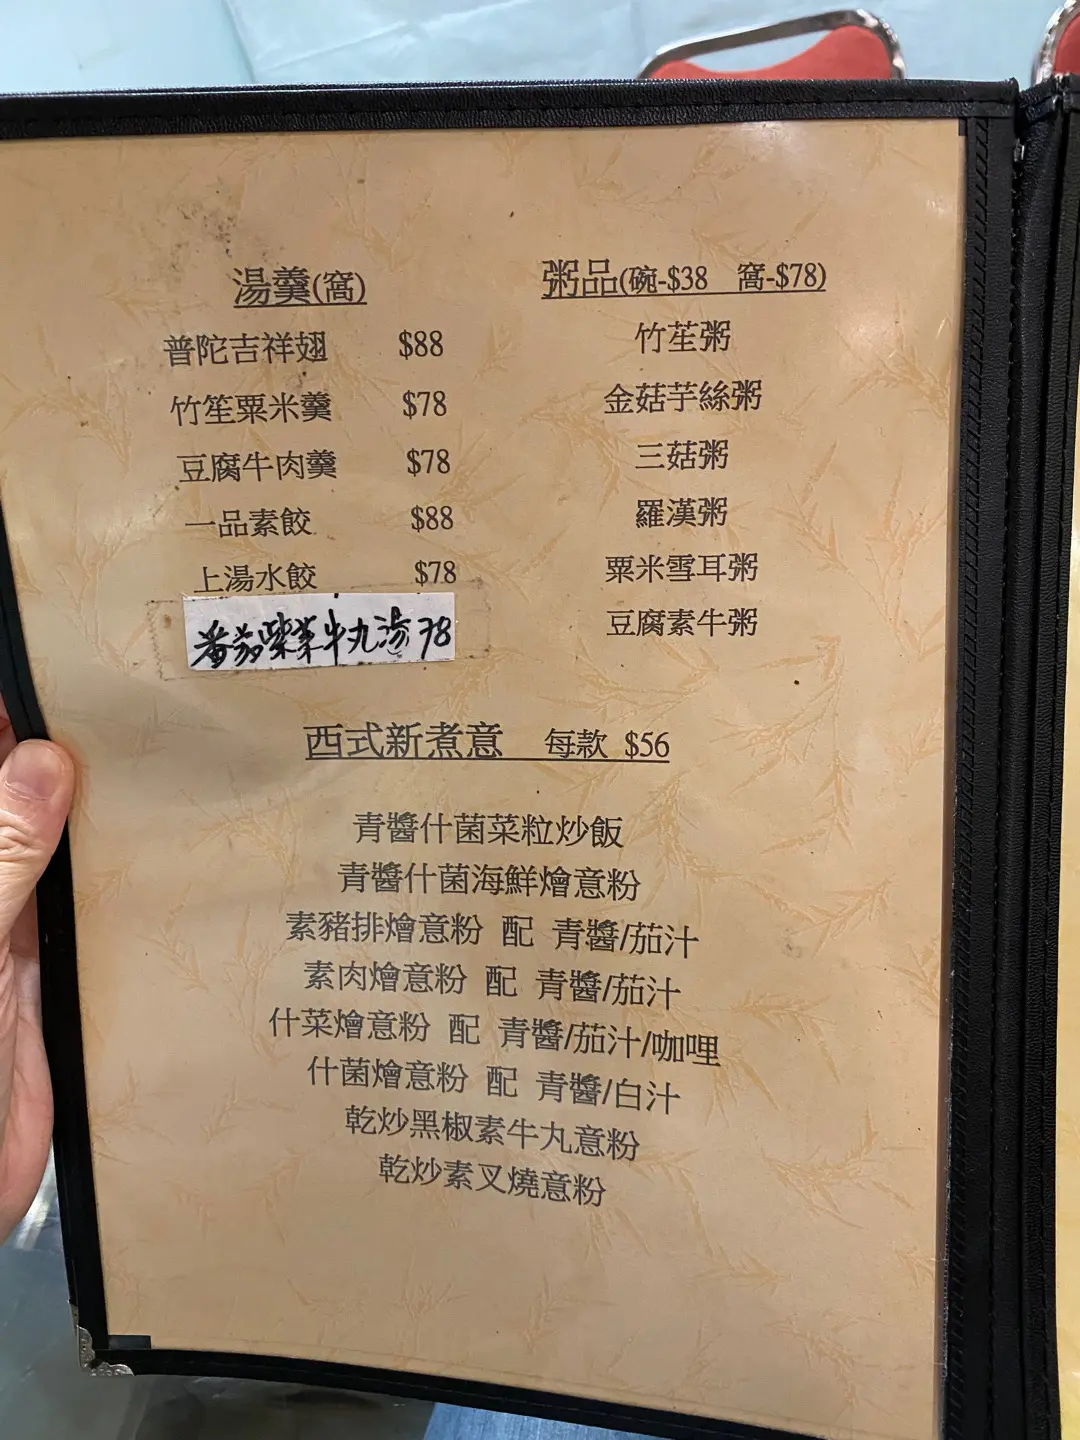 湯羹(窩)
普陀吉祥翅 $88
竹笙粟米羹 $78
豆腐牛肉羹 $78
一品素餃 $88
上湯水餃 $78
番茄紫菜牛丸湯 78
粥品(碗-$38 窩-$78)
竹笙粥
金菇芋絲粥
三菇粥
羅漢粥
粟米雪耳粥
豆腐素牛粥
西式新煮意 每款 $56
青醬什菌菜粒炒飯
青醬什菌海鮮燴意粉
素豬排燴意粉 配 青醬/茄汁
素肉燴意粉 配 青醬/茄汁
什菜燴意粉 配 青醬/茄汁/咖哩
什菌燴意粉 配 青醬/白汁
乾炒黑椒素牛丸意粉
乾炒素叉燒意粉